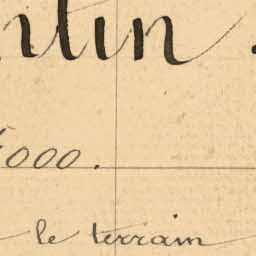 ntin
000.
le terrain